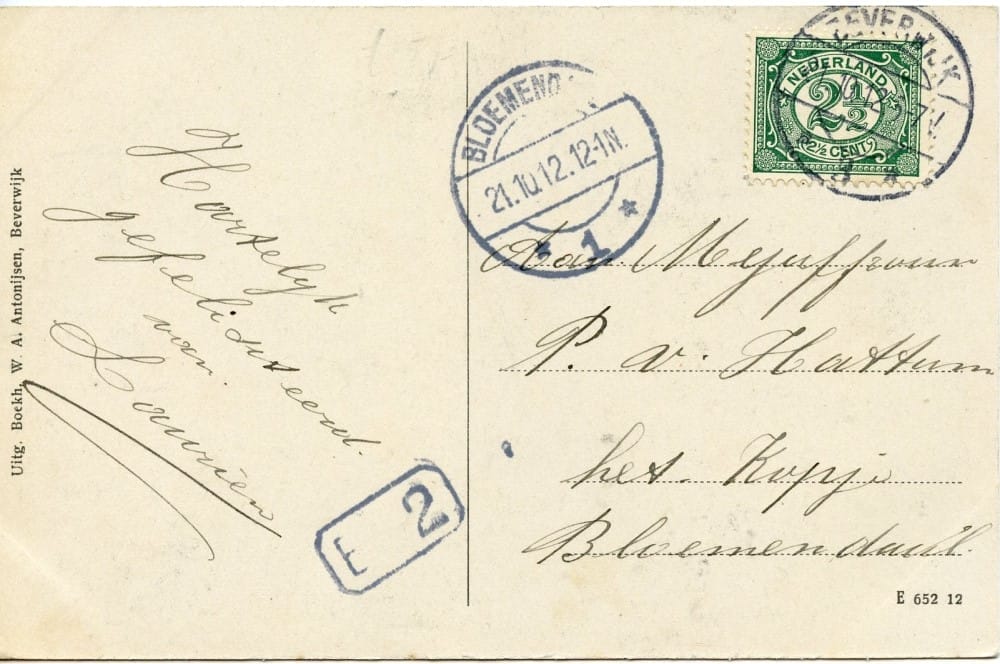 Uitg. Boekh. W. A. Antonijsen, Beverwijk
Hartelyk
gefeliciteerd.
van
Louwrien
E 2
BLOEMEND
21.10.12.12-1N.
1
BEVERWIJK
NEDERLAND
2½
2½ CENT
Aan Mejuffrouw
P. v. Hattum
het Kopje
Bloemendaal.
E 652 12